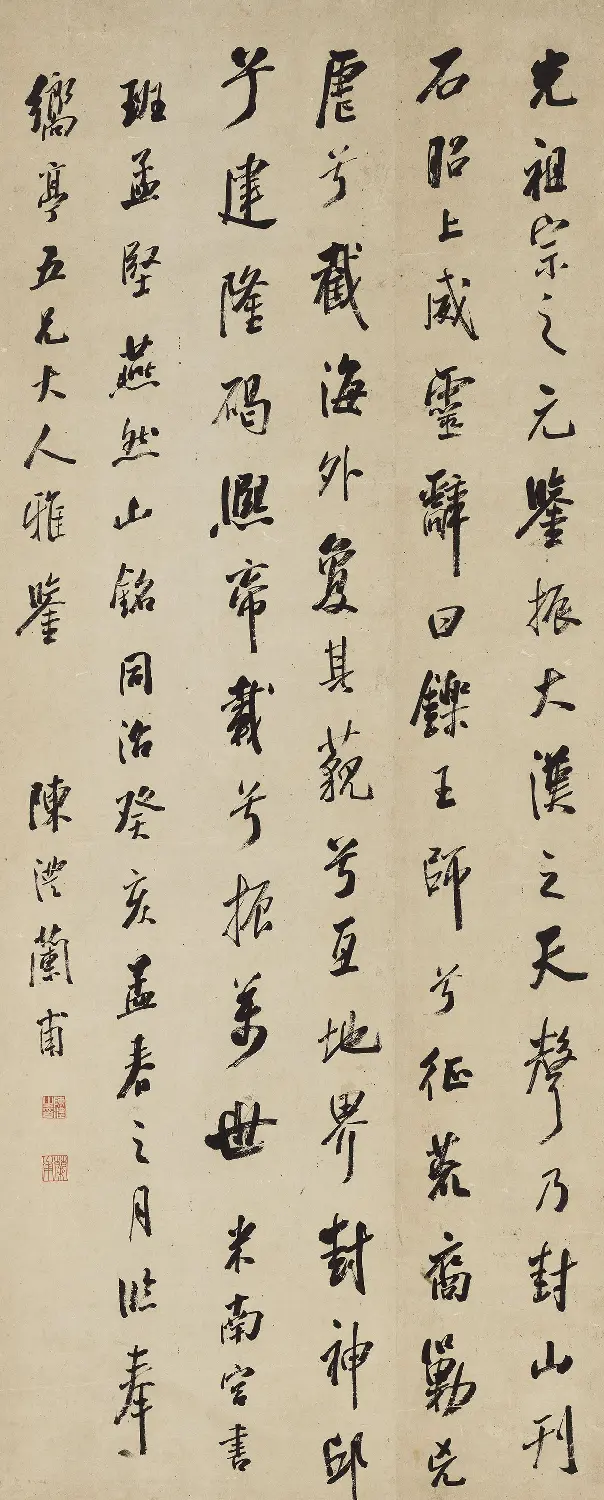 光祖宗之元鑒振大漢之天聲乃封山刊
石昭上威靈辭曰鑠王師兮征荒裔勦兇
虐兮截海外夐其藐兮亙地界封神邱
兮建隆碣熙帝載兮振萬世 米南宮書
班孟堅燕然山銘同治癸亥孟春之月臨奉
亭五兄大人雅鑒 陳澧蘭甫